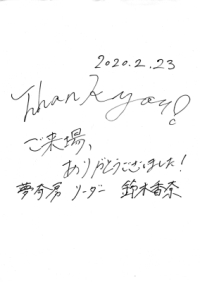 2020.2.23
Thank you!
ご来場、
ありがとうございました!
夢奇房 リーダー 鈴木香奈